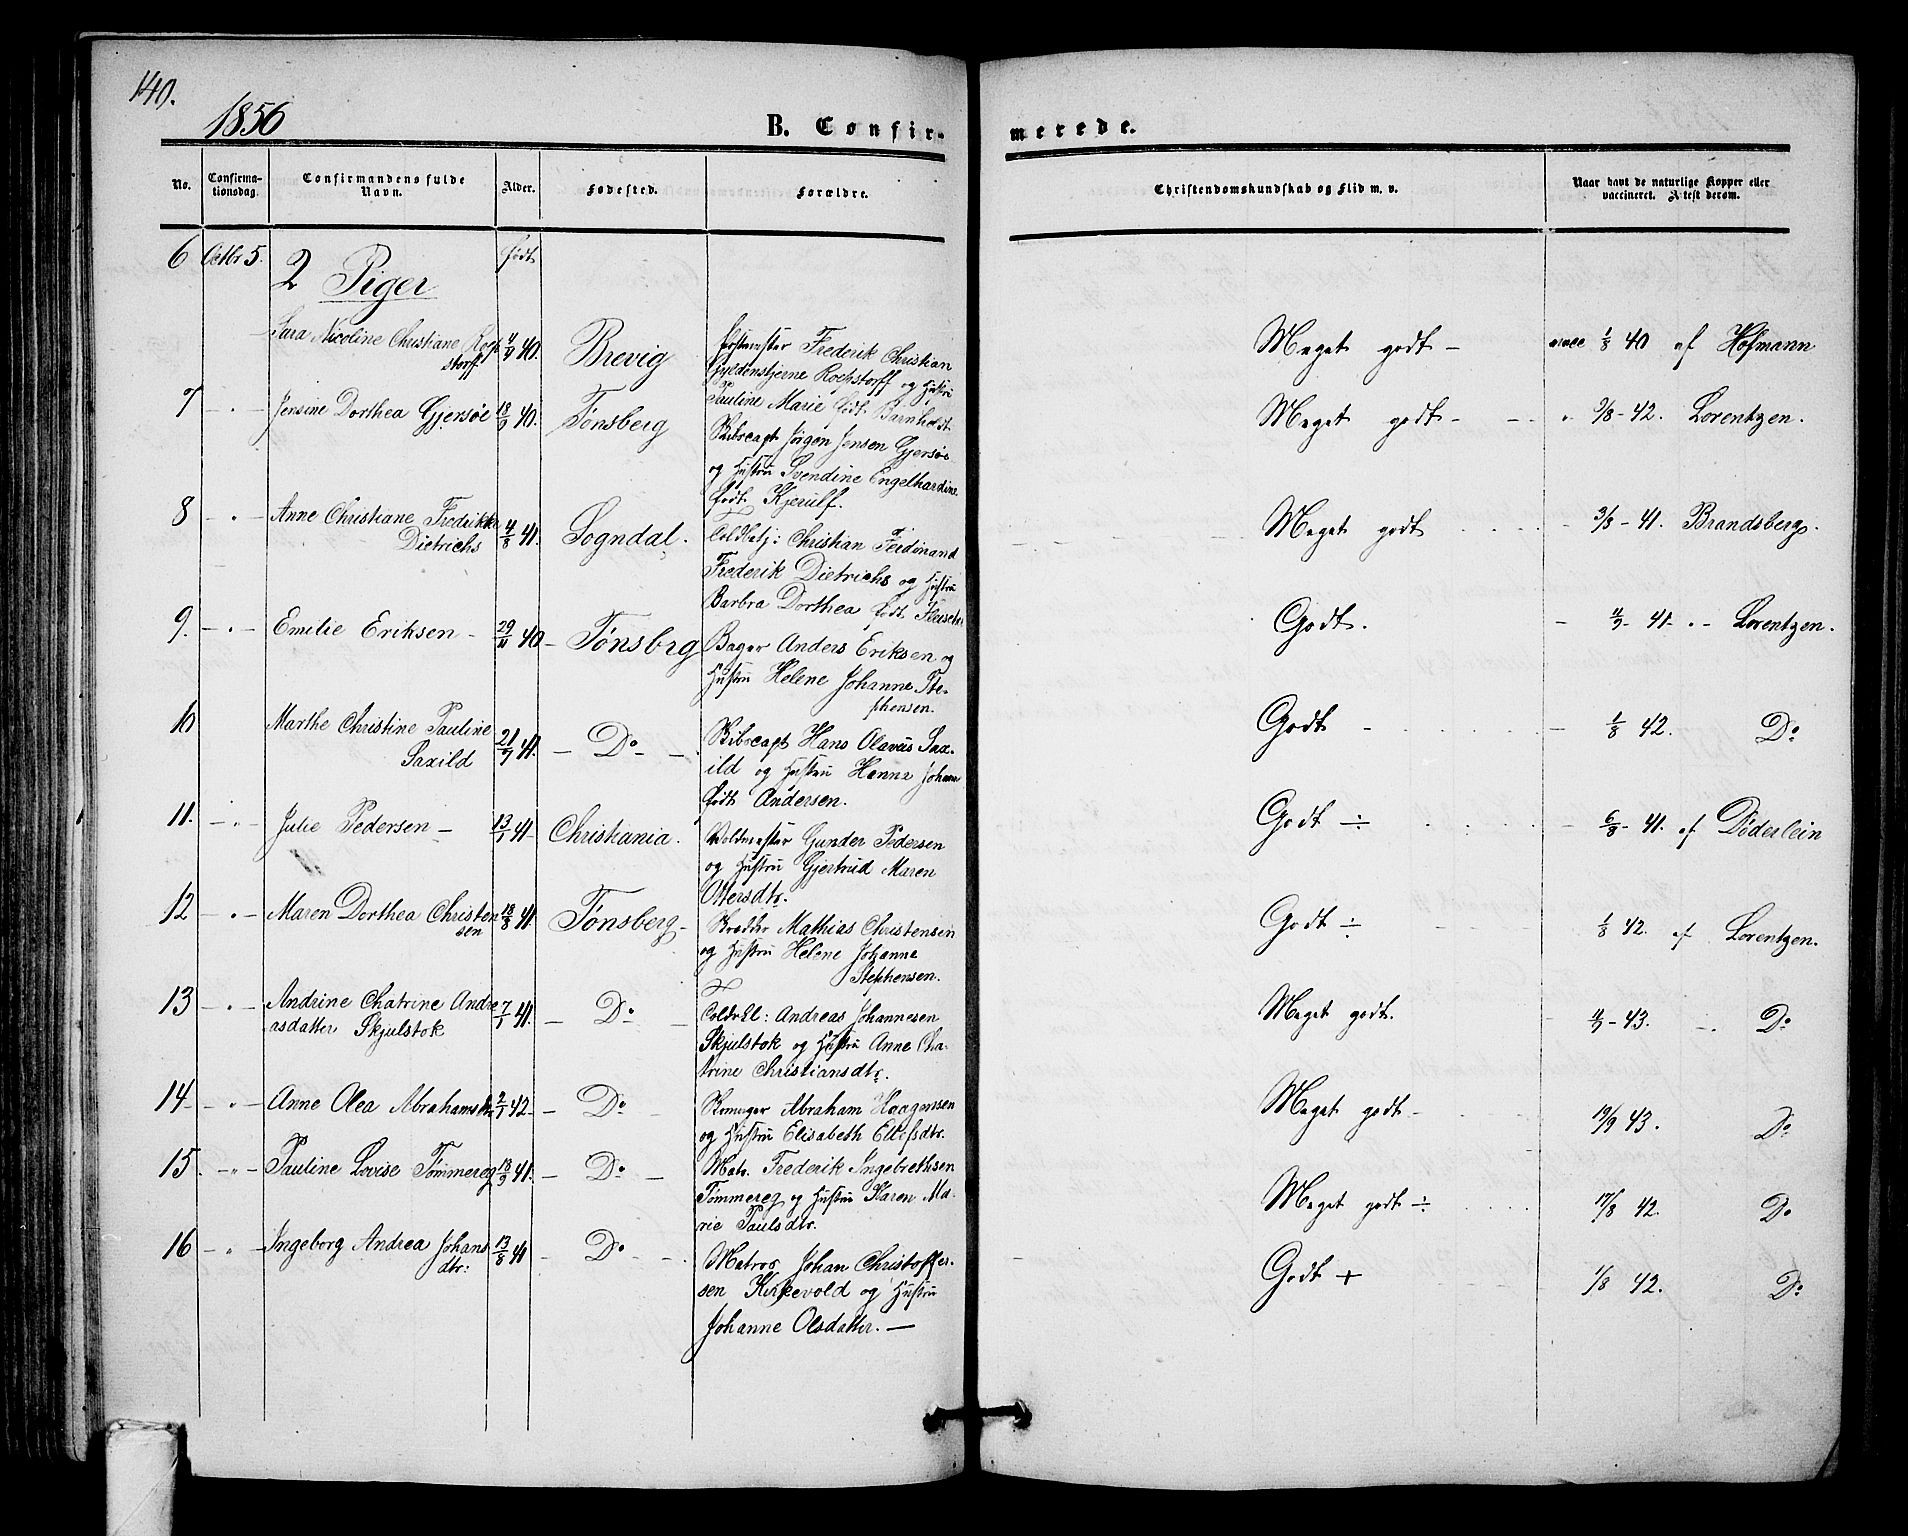 140.
1856
B. Confir-
merede.
No.
Confirma-
tionsdag.
Confirmandens fulde
Navn.
Alder.
Fødested.
Forældre.
Christendomskundskab og Flid m. v.
Naar havt de naturlige Kopper eller
vaccineret. Attest derom.
6 Octbr 5. 2 Piger født
Sara Nicoline Christiane Roep
storff 4/9 40. Brevig
Postmester Frederik Christian
Gyldenstjerne Roepstorff og Hustru
Pauline Marie født Barnholdt
Meget godt - vacc 1/8 40 af Hofmann
7 - " - Jensine Dorthea Gjersøe 18/9 40. Tønsberg
Skibscapt Jörgen Jensen Gjersøe
og Hustru Svendine Engelhardine
født Kjerulf.
Meget godt - - " 9/8 - 42. Lorentzen.
8 - " - Anne Christiane Fredrikke
Dietrichs 4/8 41. Sogndal.
Toldbetj: Christian Ferdinand
Frederik Dietrichs og Hustru
Barbra Dorthea født Fleischer
Meget godt - 3/8 - 41. Brandsberg.
9. - " - Emilie Eriksen - 29/11 40 - Tønsbrg
Bager Anders Eriksen og
Hustru Helene Johanne Ste-
phensen.
Godt. - 4/9 - 41 - " - Lorentzen.
10 Marthe Christine Pauline
Saxild 21/7 41. - Do -
Skibscapt Hans Olavus Sax-
ild og Hustru Hanna Johanne
født Andersen.
Godt - - 1/8 42. Do
11. - " - Julie Pedersen - 13/1 41 - Christiania.
Voldmester Gunder Pedersen
og Hustru Gjertrud Maren
Ottersdtr.
Godt ÷ - 6/8 - 41. af Döderlein
12 - " - Maren Dorthea Christen
sen 18/8 41. Tønsberg -
Skrædder Mathias Christensen
og Hustru Helene Johanne
Stephensen.
Godt ÷ 1/8 42. af Lorentzen.
13 - " - Andrine Chatrine Andre
asdatter Skjulstok 7/1 41. - Do -
Andreas Johannesen
Skjulstok og Hustru Anne Cha-
trine Christiansdtr.
Meget godt. - 4/9 - 43. - Do
14 - " - Anne Olea Abrahamsdtr 2/1 42 - Do -
Abraham Haagensen
og Hustru Elisabeth Ellefsdtr.
Meget godt - 19/9 43. Do
15. - " - Pauline Lovise Tømmereg 18/9 41. - Do -
Matr. Frederik Ingebrethsen
Tømmereg og Hustru Karen Ma-
rie Paulsdtr.
Meget godt ÷ 17/8 42. Do
16 - " - Ingeborg Andrea Johans
dtr: 13/8 41 - Do -
Matros Johan Christoffer-
sen Kirkevold og Hustru
Johanne Olsdatter. -
Godt + 1/8 42. Do